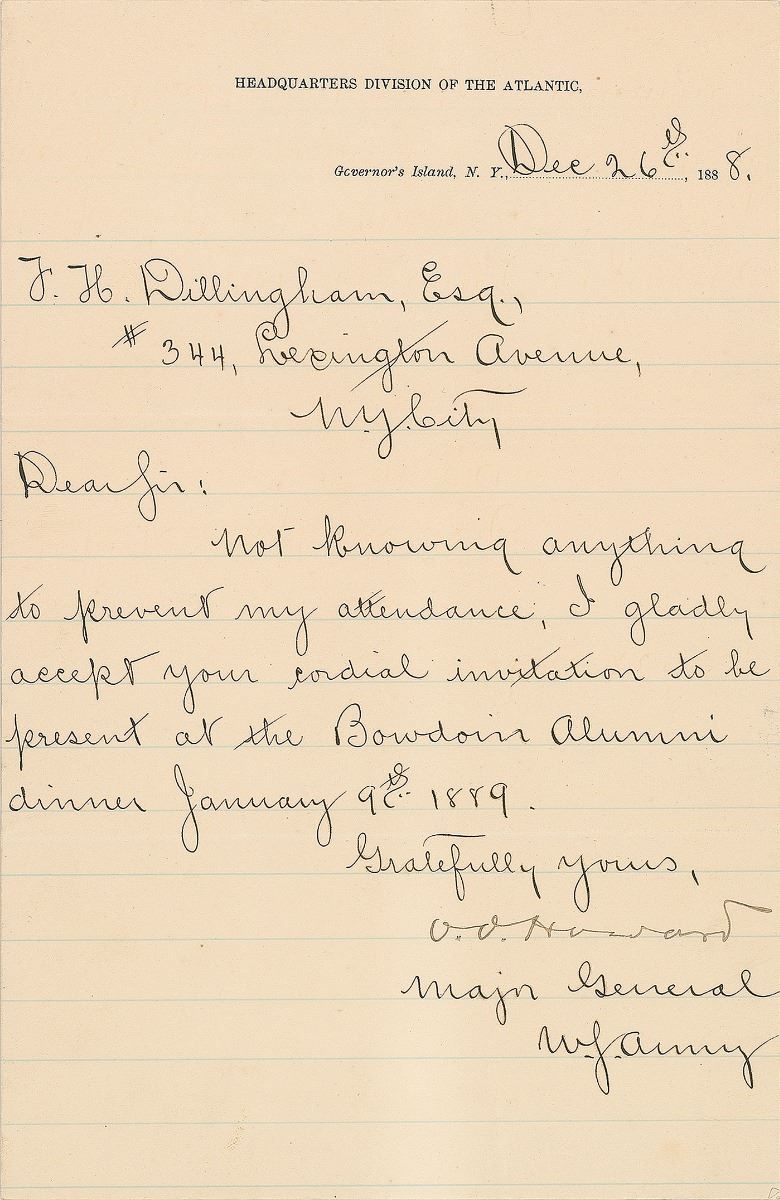 HEADQUARTERS DIVISION OF THE ATLANTIC,
Governor's Island, N. Y., Dec 26th, 1888.
F. H. Dillingham, Esq.,
# 344, Lexington Avenue,
N.Y. City
Dear Sir:
Not knowing anything
to prevent my attendance, I gladly
accept your cordial invitation to be
present at the Bowdoin Alumni
dinner January 9th 1889.
Gratefully yours,
O. O. Howard
Major General
U.S. Army